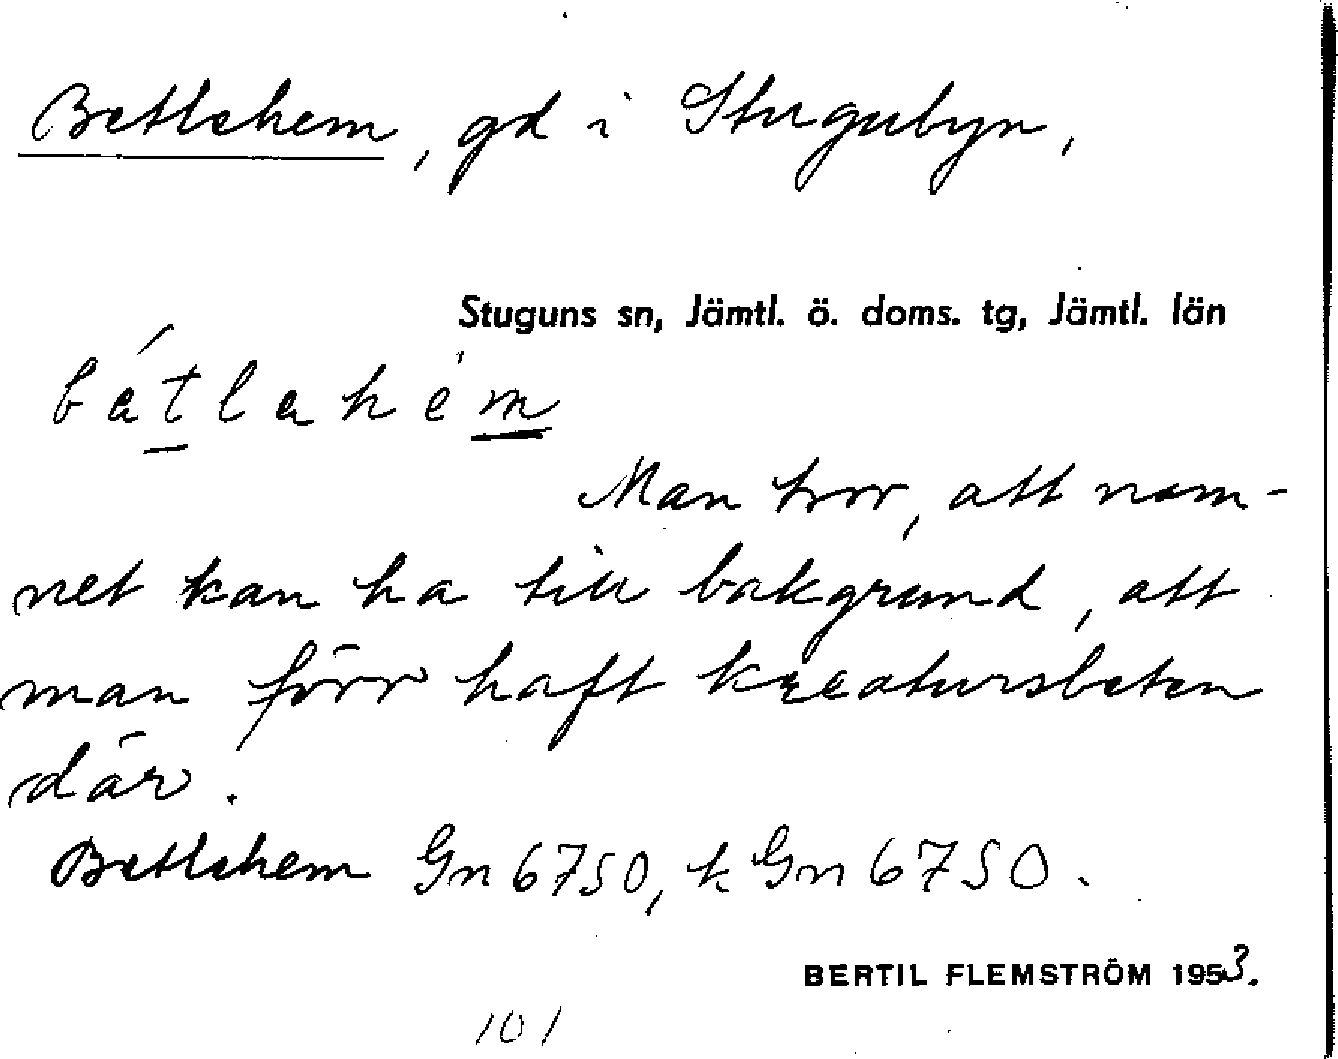 Betlehem, gd i Stugubyn,
Stuguns sn, Jämtl. ö. doms. tg, Jämtl. län
bátlahém
Man tror, att nam-
net kan ha till bakgrund, att
man förr haft kreatursbeten
där.
Betlehem Gn 6750, k Gn 6750.
BERTIL FLEMSTRÖM 1953.
101